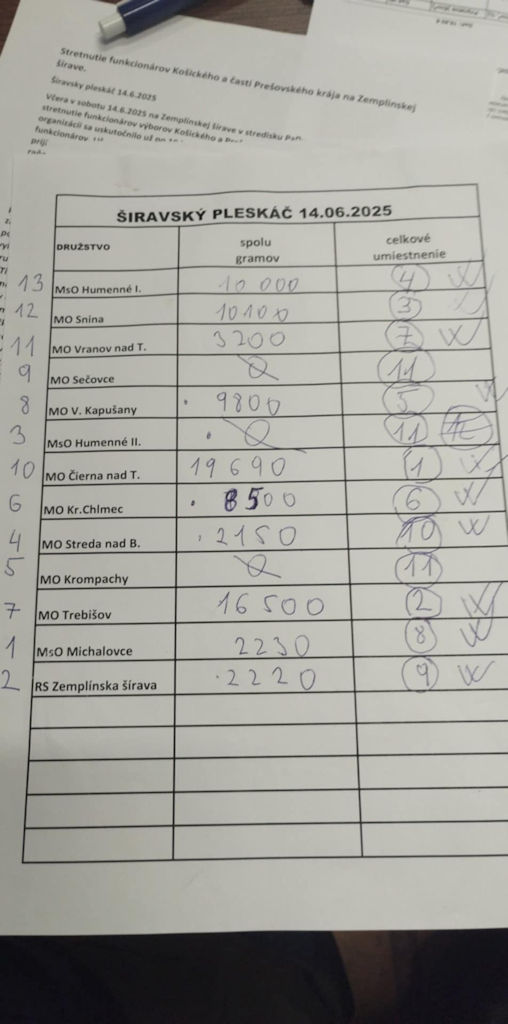 Stretnutie funkcionárov Košického a časti Prešovského krája na Zemplínskej
šírave.
Šíravsky pleskáč 14.6.2025
Včera v sobotu 14.6.2025 na Zemplínskej šírave v stredisku
stretnutie funkcionárov výborov Košického a
organizácií sa uskutočnilo už po
funkcionárov.
ŠIRAVSKÝ PLESKÁČ 14.06.2025
DRUŽSTVO spolu gramov celkové umiestnenie
13 MsO Humenné I. 10 000 4
12 MO Snina 10100 3
11 MO Vranov nad T. 3200 7
9 MO Sečovce 0 11
8 MO V. Kapušany 9800 5
3 MsO Humenné II. 0 11
10 MO Čierna nad T. 19 690 1
6 MO Kr.Chlmec 8500 6
4 MO Streda nad B. 2150 10
5 MO Krompachy 0 11
7 MO Trebišov 16 500 2
1 MsO Michalovce 2230 8
2 RS Zemplínska šírava 2220 9